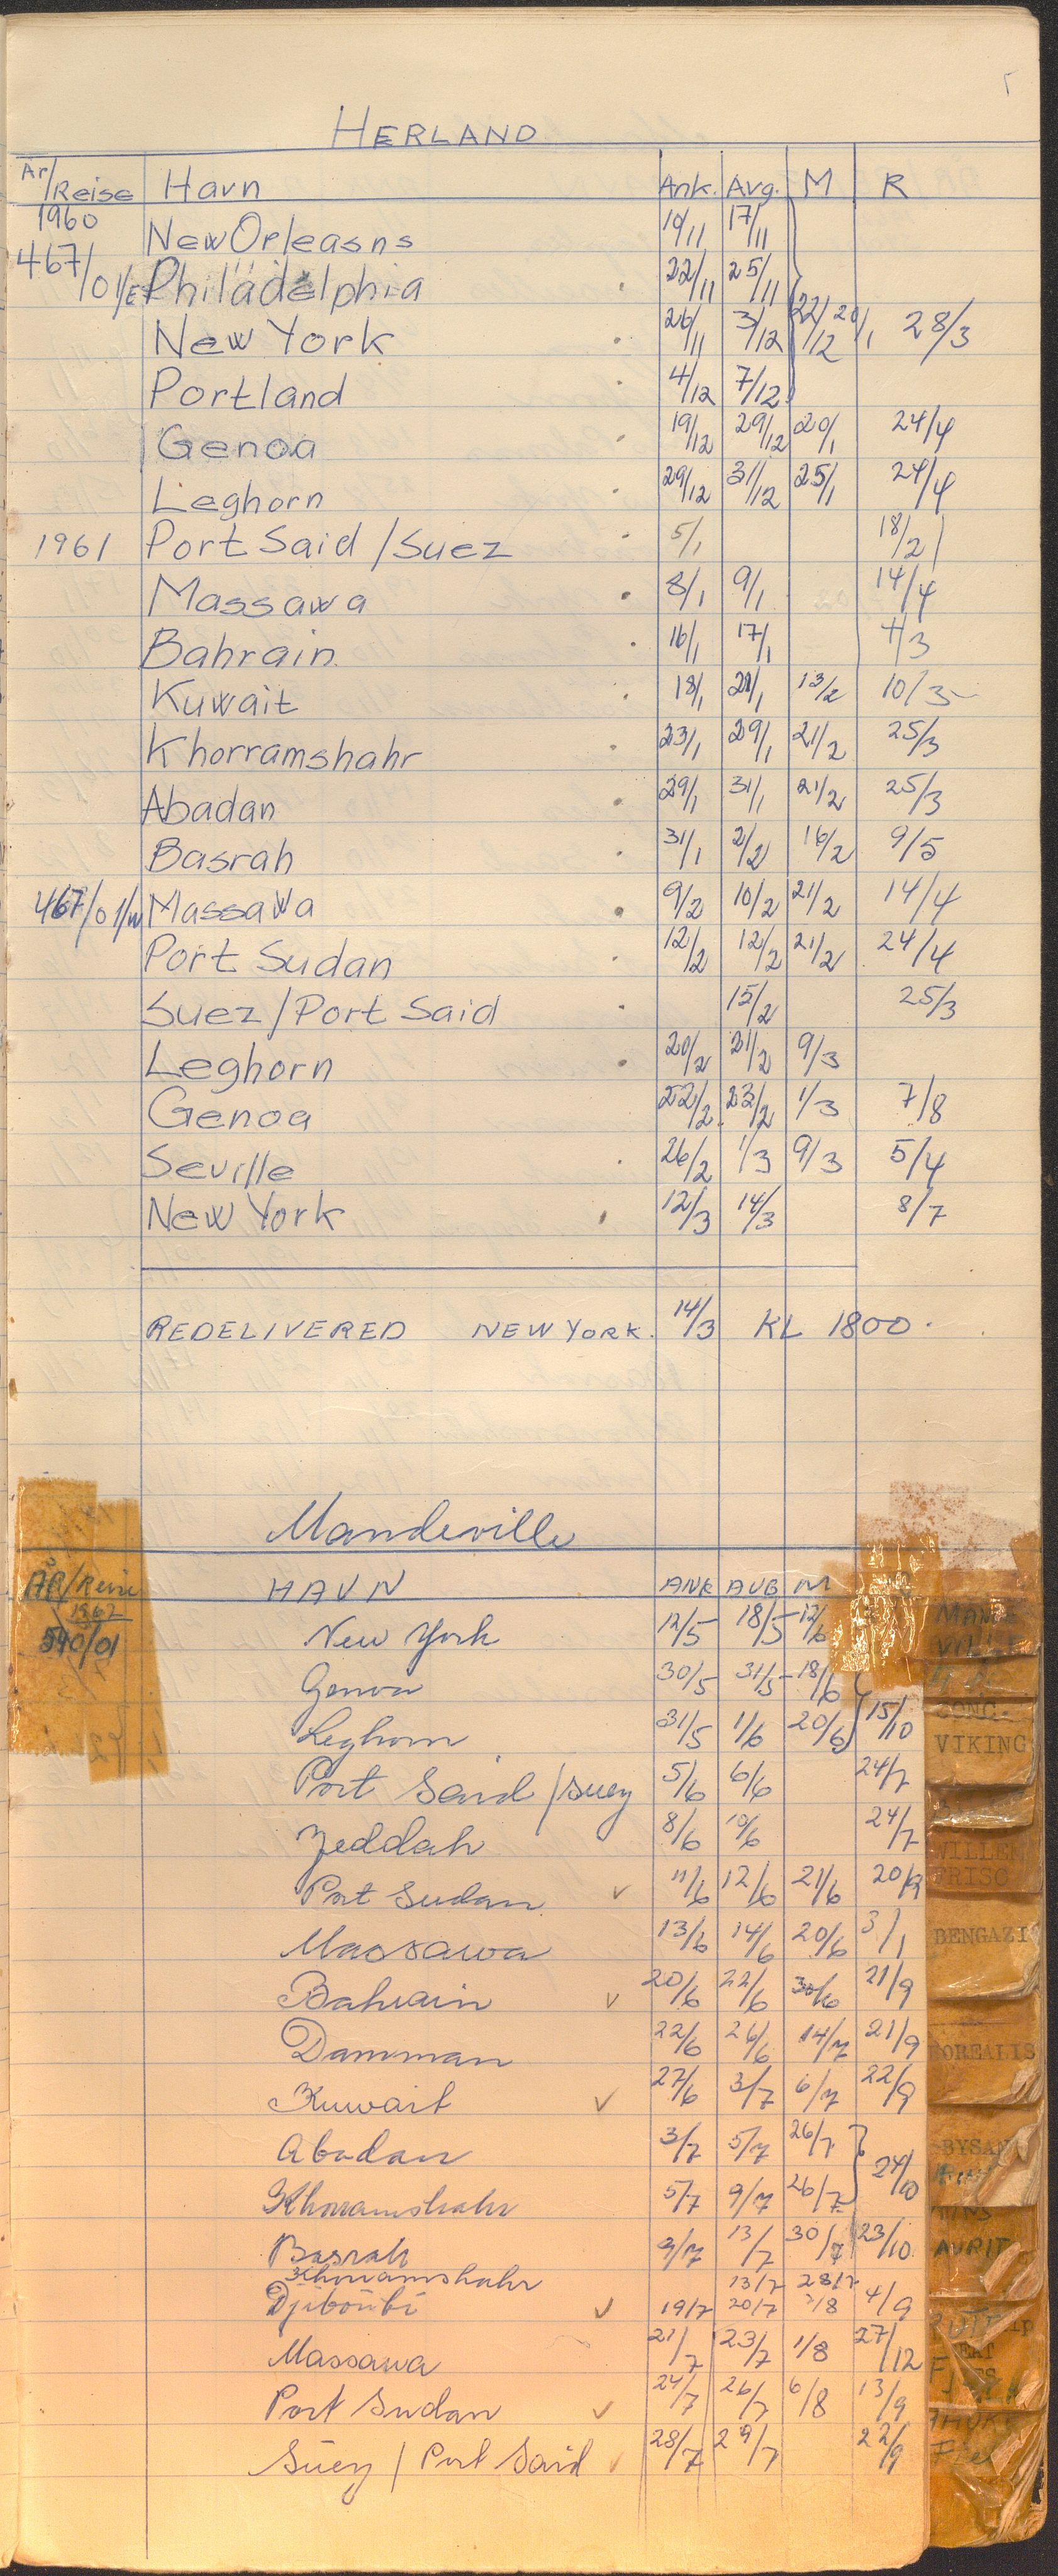 HERLAND
År/Reise Havn Ank. Avg. M R
1960
467/01/E New Orleasns 10/11 17/11
Philadelphia 22/11 25/11
New York 26/11 3/12 22/12 20/1 28/3
Portland 4/12 7/12
Genoa 19/12 29/12 20/1 24/4
Leghorn 29/12 31/12 25/1 24/4
1961 Port Said /Suez 5/1 18/2
Massawa 8/1 9/1 14/4
Bahrain 16/1 17/1 4/3
Kuwait 18/1 21/1 13/2 10/3
Khorramshahr 23/1 29/1 21/2 25/3
Abadan 29/1 31/1 21/2 25/3
Basrah 31/1 2/2 16/2 9/5
467/01/W Massawa 9/2 10/2 21/2 14/4
Port Sudan 12/2 12/2 21/2 24/4
Suez/Port Said 15/2 25/3
Leghorn 20/2 21/2 9/3
Genoa 22/2 23/2 1/3 7/8
Seville 26/2 1/3 9/3 5/4
New York 12/3 14/3 8/7
REDELIVERED NEW YORK. 14/3 KL 1800.
Mandeville
ÅR/Reise HAVN ANK AVG M
1962
590/01 New York 12/5 18/5 12/6
Genoa 30/5 31/5 18/6
Leghorn 31/5 1/6 20/6 15/10
Port Said /Suez 5/6 6/6 24/7
Jeddah 8/6 10/6 24/7
Port Sudan ✓ 11/6 12/6 21/6 20/9
Massawa 13/6 14/6 20/6 3/1
Bahrain ✓ 20/6 22/6 30/6 21/9
Damman 22/6 26/6 14/7 21/9
Kuwait ✓ 27/6 3/7 6/7 22/9
Abadan 3/7 5/7 26/7
Khorramshahr 5/7 9/7 26/7 24/10
Basrah 9/7 13/7 30/7 23/10
Khorramshahr 13/7 28/7
Djibouti ✓ 19/7 20/7 4/9
Massawa 21/7 23/7 1/8 27/12
Port Sudan ✓ 24/7 26/7 6/8 13/9
Suez / Port Said ✓ 28/7 29/7 22/9
VIKING
BENGAZI